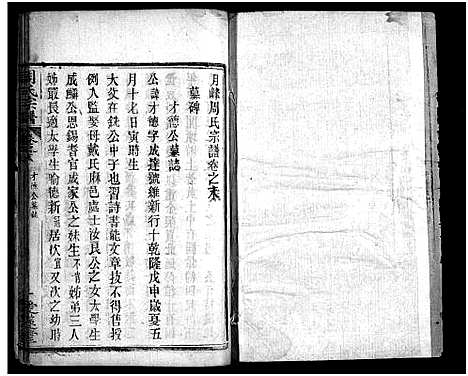 月峰周氏宗譜卷之末
墓碑
才德公墓誌
公諱才德字成達號維新行十乾隆戊申歲夏五
月十七日寅時生
大父在鎬公中子也習詩書能文章技不得售授
例入監娶母戴氏麻邑處士汝良公之女太學生
成麟公恩錫耆官成家公之妹生不肖姊弟三人
姊最長適太學生喻德新居次宜又次之幼時
周氏宗譜
才德公墓誌